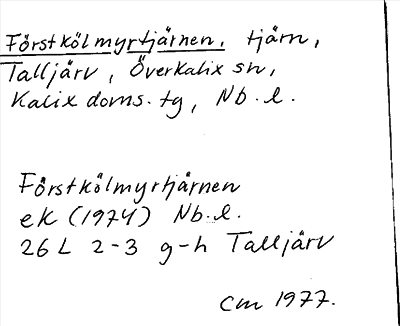 Förstkölmyrtjärnen, tjärn,
Talljärv, Överkalix sn,
Kalix doms. tg, Nb. l.
Förstkölmyrtjärnen
ek (1974) Nb. l.
26 L 2-3 g-h Talljärv
CM 1977.